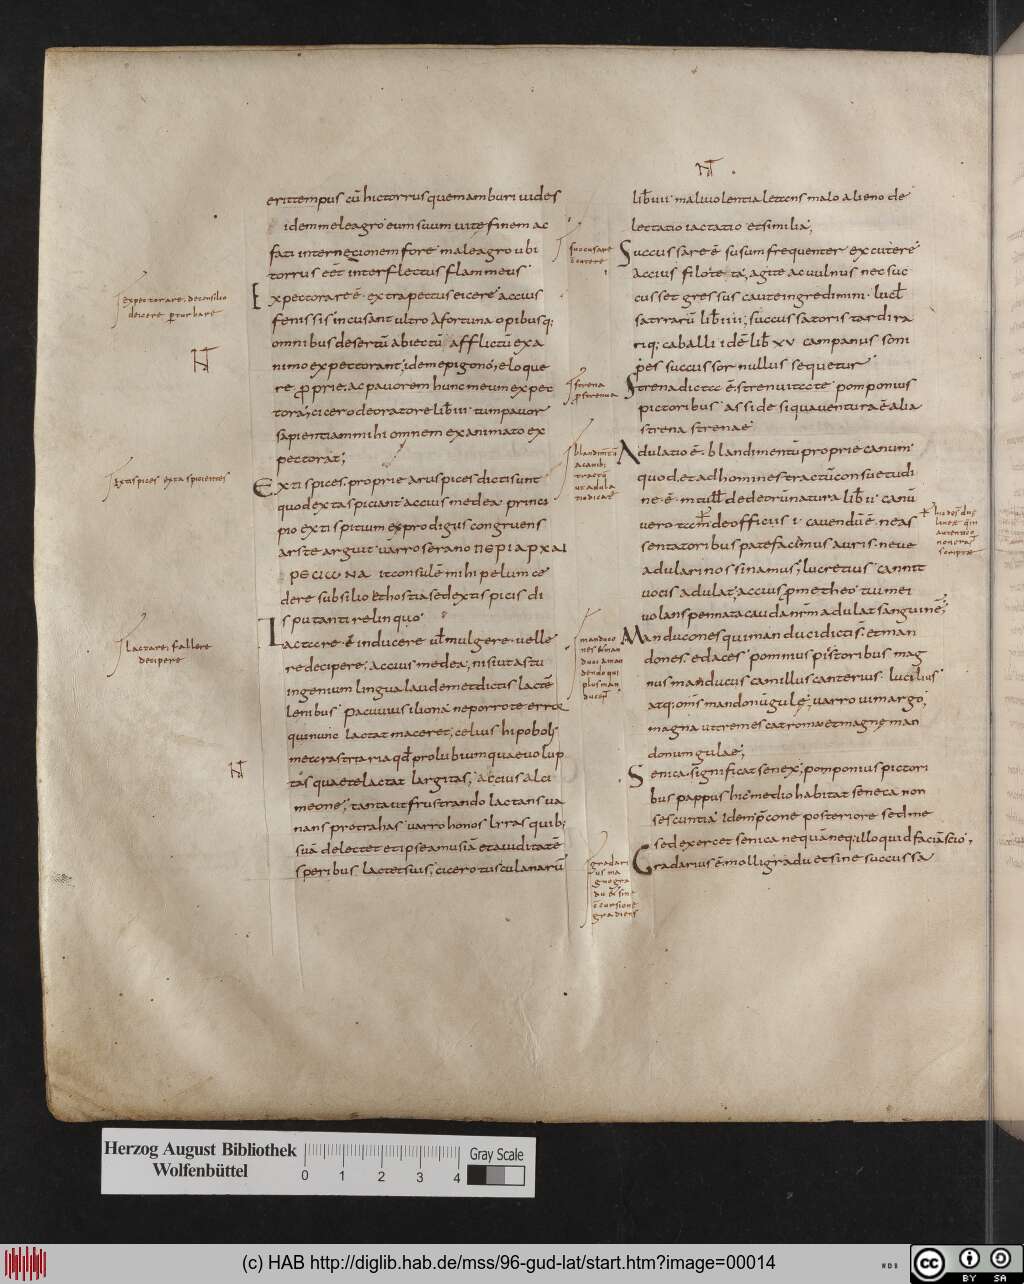 erit tempus cū hic torrus quem amburi uides
idem meleagro eum suum uitę finem ac
fati internecionem fore maleagro ubi
torrus eēt interflectus flammeus
Expectorare ē extra pectus eicere accius
fenissis incusant ultro a fortuna opibusq;
omnibus desertū abiectū afflictū exa
nimo expectorant; idem epigono; eloque
re proprie; ac pauorem hunc meum expec
tora; cicero de oratore lib iii tum pauor
sapientiam mihi omnem exanimato ex
pectorat;
Extispices proprie aruspices dicti sunt
quod exta spiciant accius medea princi
pio extispitium ex prodigiis congruens
ars te arguit uarro serano ΠΕΡΙΑΡΧΑΙ
it consulē mihi pelum ce
dere subsilio et hostias ed extispicis di
sputanti relinquo
Lactare ē inducere ul mulgere uelle
re decipere; accius medea; nisi ut astu
ingenium lingua laudem et dictis lactē
lenibus pacuuius iliona ne porro te error
qui nunc lactat maceret; celius hipobol
metcrastria ria qd prolubium quae uolup
tas quae te lactat largitas; accius alci
meone; tanta ut frustrando lactans ua
nans protrahas uarro honos lrras quib;
suā delectet et ipse amusiā et auiditatē
speribus lactet suis; cicero tusculanarū
lib iiii maliuolentia letcens malo alieno de
lectatio iactatio et similia;
Succussare ē susum frequenter excutere
accius filoteta; agite ac uulnus ne suc
cusset gressus caute ingredimini lucl
satrrarū lib iiii; succussatoris tardi ra
riq; caballi idē lib xv campanus soni
pes succussor nullus sequetur
Strena dicta ē strenuitate pomponius
pictoribus asside si qua uentura ē alia
strena strenae
Adulatio ē blandimentū proprie canum
quod et ad homines tractū consuetudi
ne ē m tull de deorū natura lib ii canū
uero de officiis i cauendū ē ne as
sentatoribus patefacimus auris neue
adulari nos sinamus; lucretius cannit
uocis adulat; accius pmetheo tui mei
uolans pennata cauda nrm adulat sanguinē;
Manducones qui manduci dicti s et man
dones edaces pommus pistoribus mag
nus manducus camillus canterius lucilius
atq; oms mandonū gule; uarro uimargo;
magna ut tremescat roma et magnę man
donum gulae;
Senica significat senex; pomponius pictori
bus pappus hic medio habitat seneca non
sescuntia idem pcone posteriore sed me
sed exercet senica nequā neq; illo quid faciā scio;
Gradarius ē molli gradu et sine succussa
expectorare; de consilio
deicere pturbare
Extispices exta spicientes
Lactare; fallere
decipere
succusare
strena
p strenua
blandimtū
a canib;
tractū
ut adula
tio dicat
manduco
nes et man
duci a man
dendo qui
plus man
ducet
gradari
us ma
gno gra
du et sine
gradiens
Herzog August Bibliothek
Wolfenbüttel
0 1 2 3 4
Gray Scale
(c) HAB http://diglib.hab.de/mss/96-gud-lat/start.htm?image=00014
cc BY SA